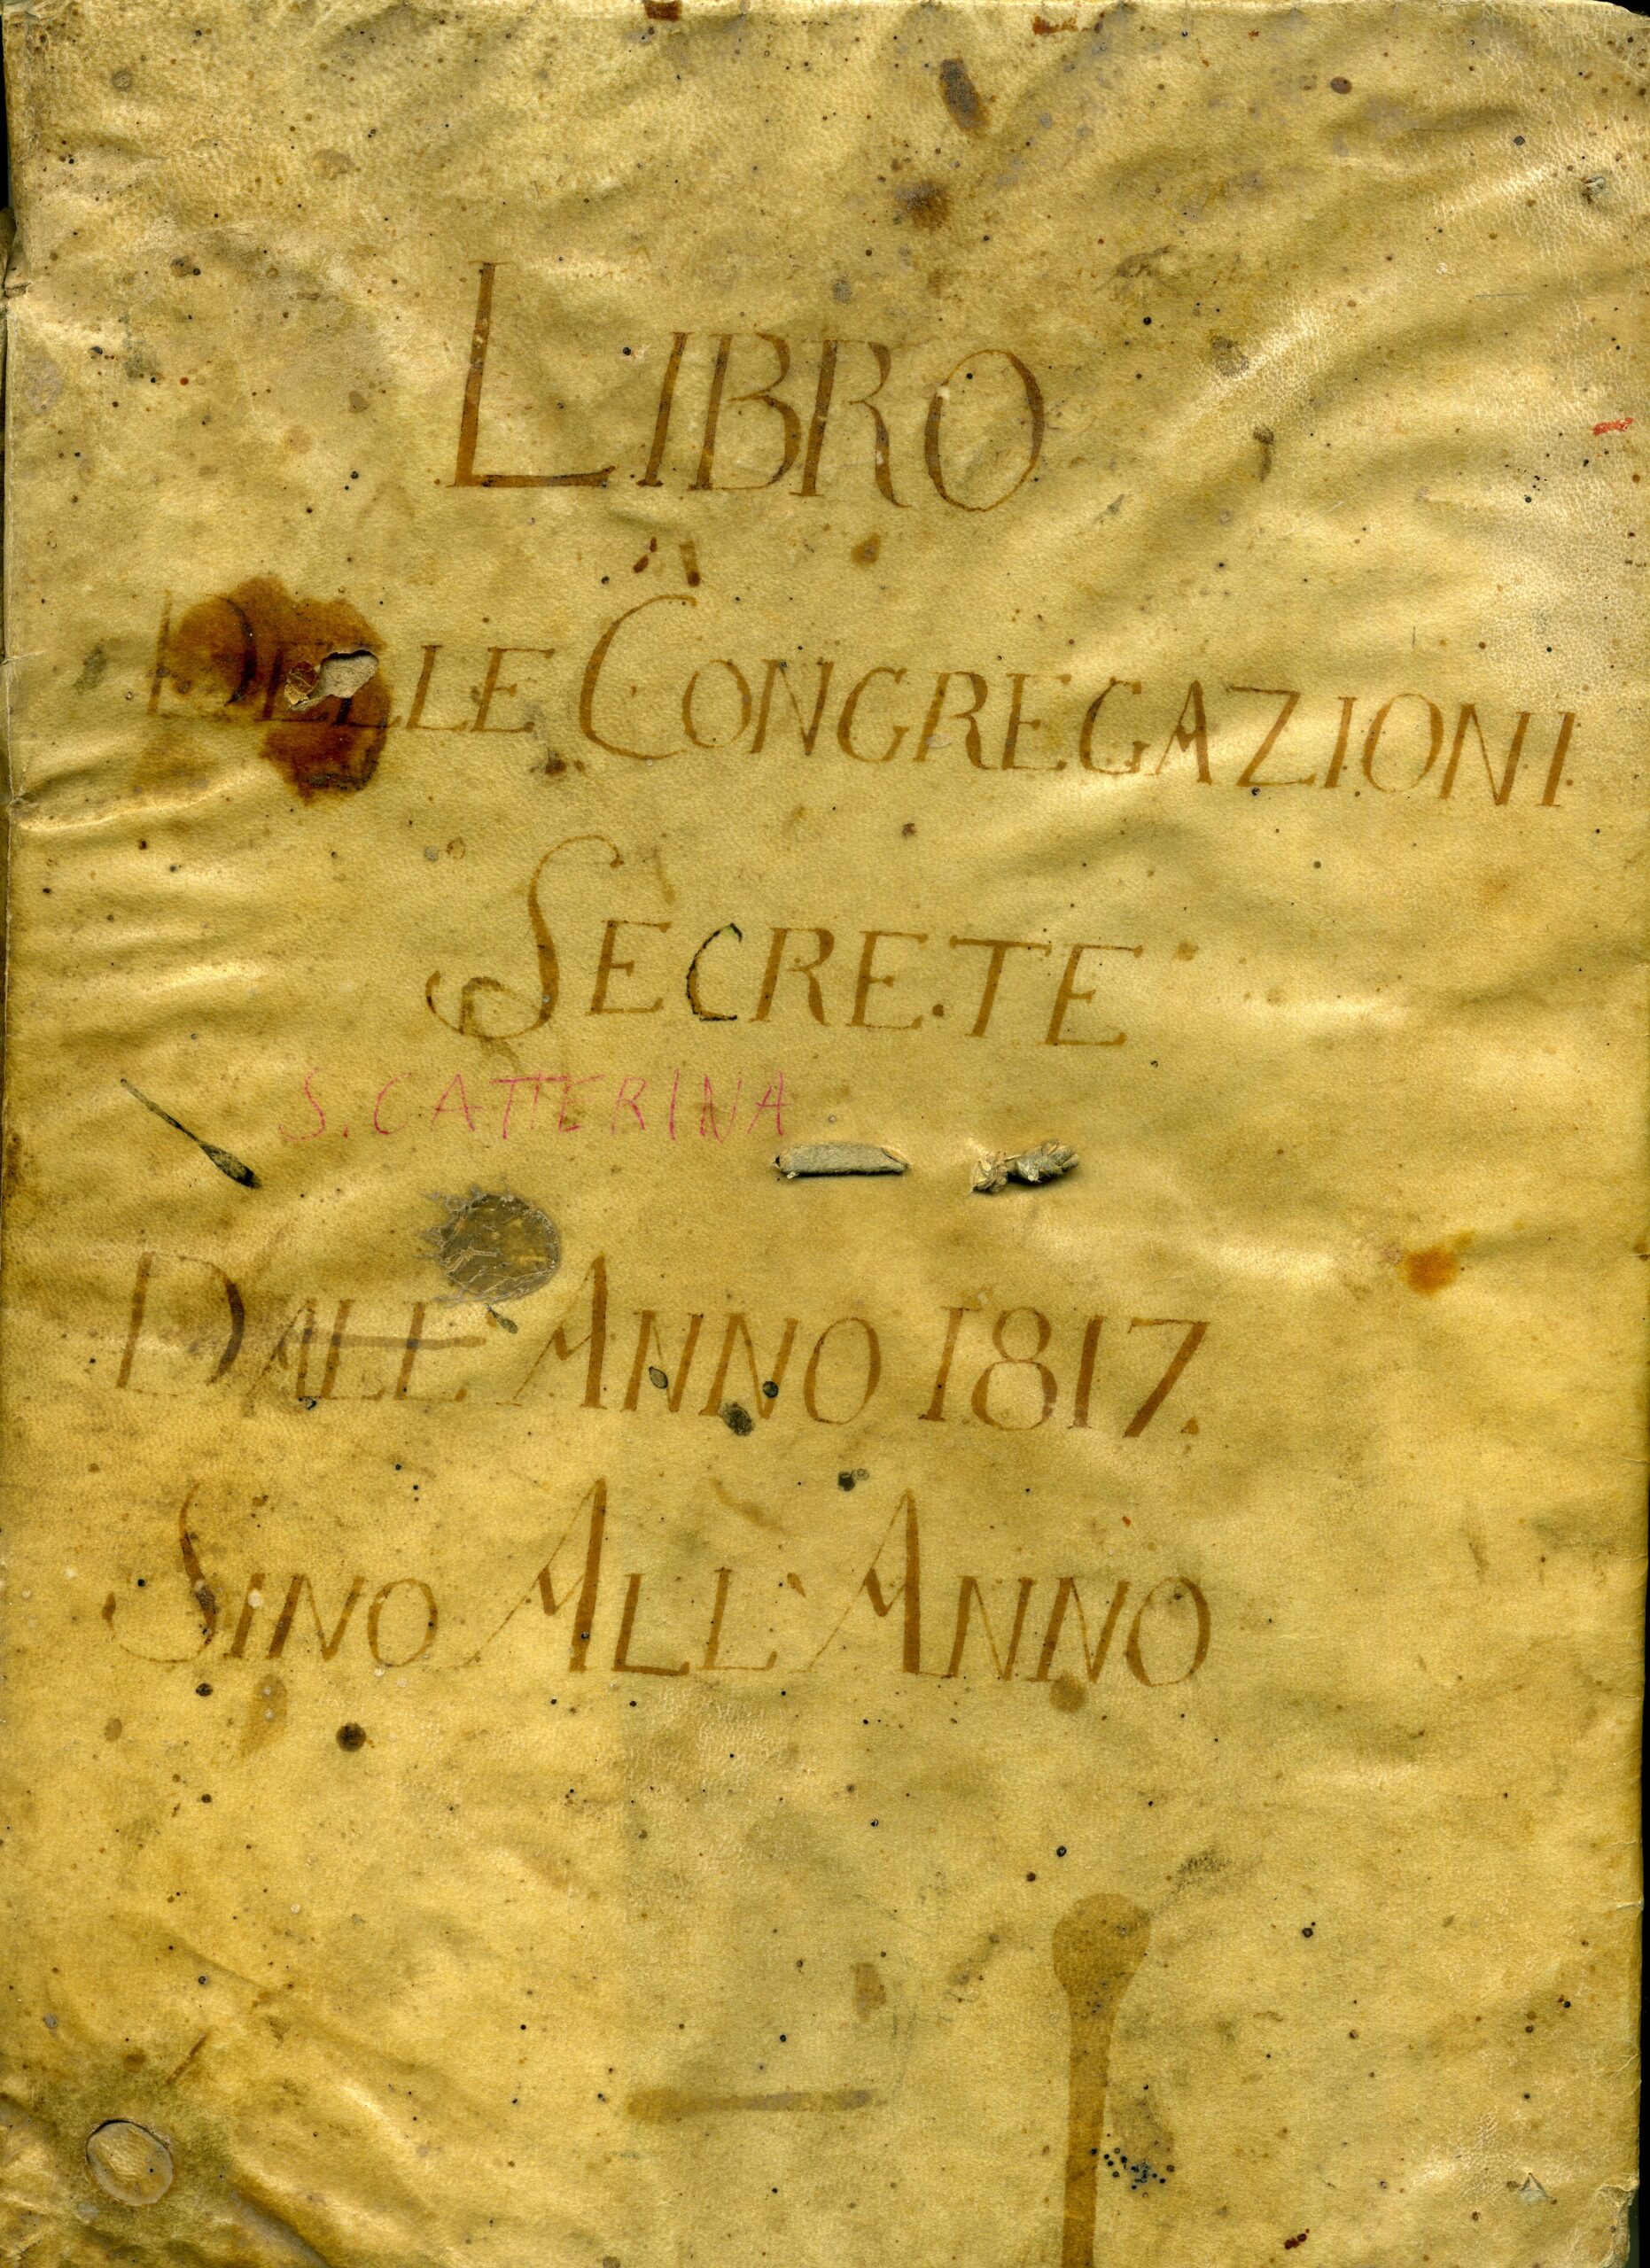 LIBRO
DELLE CONGREGAZIONI
SECRETE
S. CATTERINA
DALL'ANNO 1817.
SINO ALL'ANNO